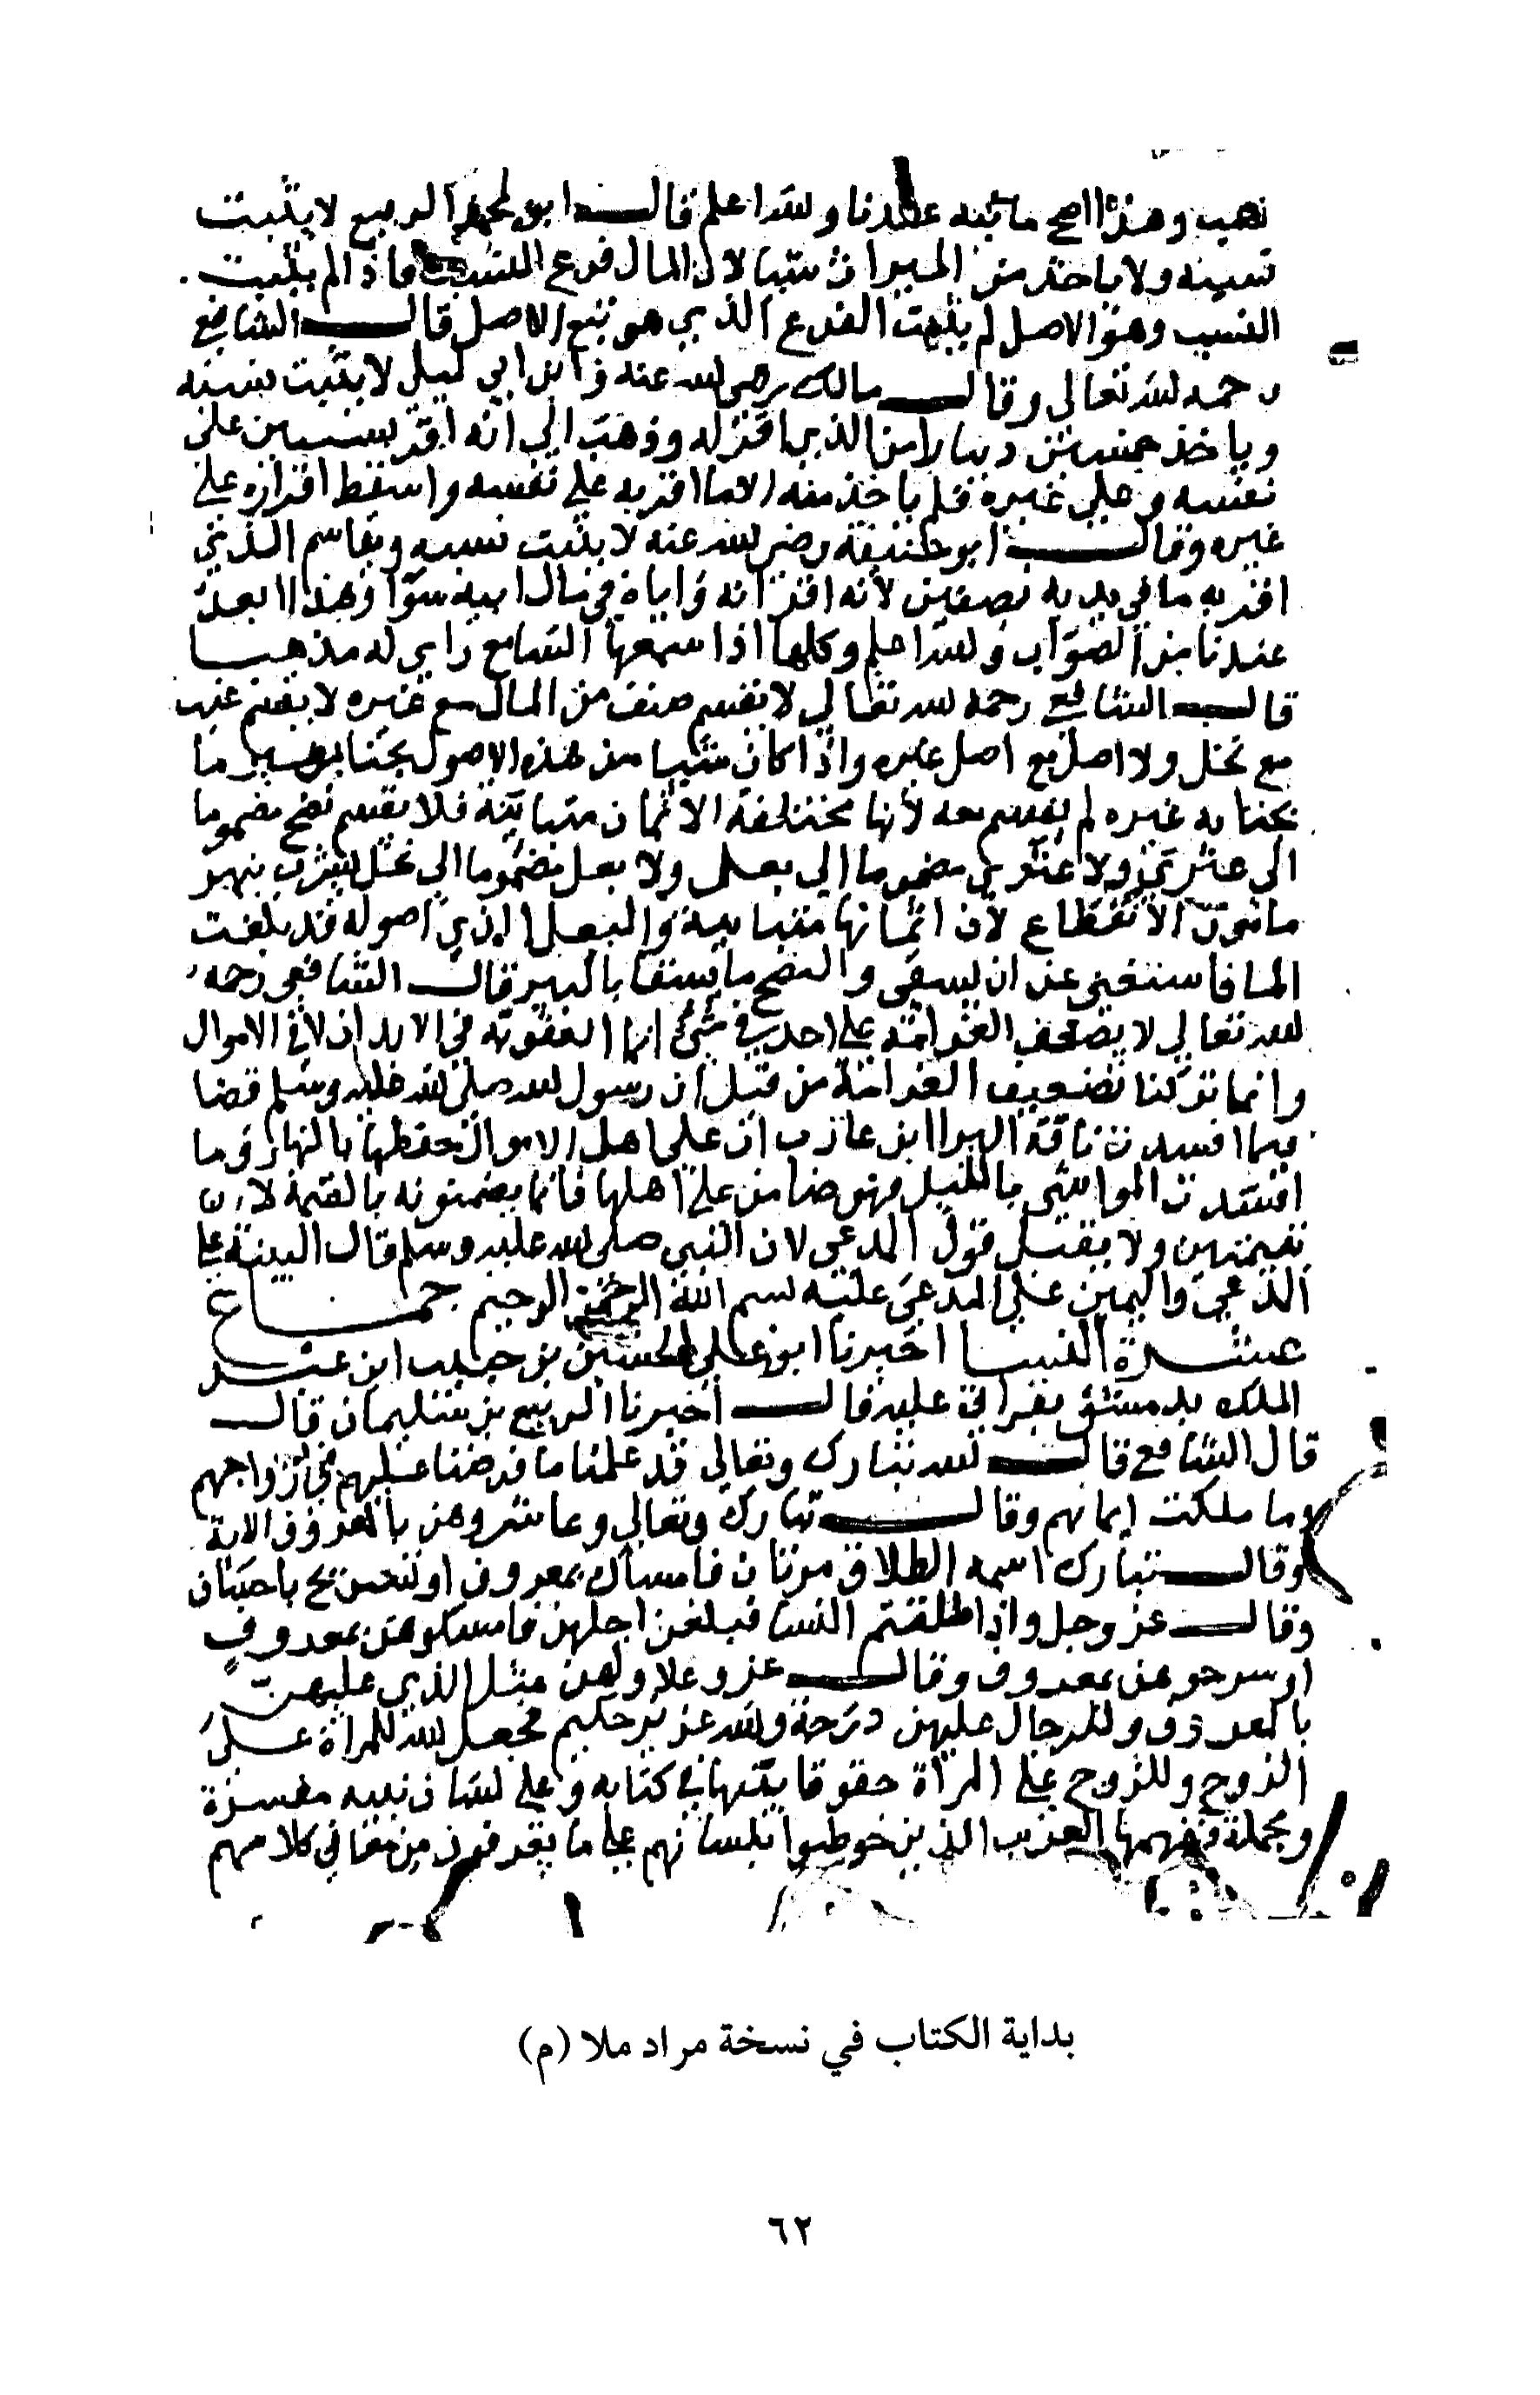 نصيب وهذا اصح ما فيه عندنا والله اعلم قال ابو محمد الربيع لا يثبت
نسبه ولا ياخذ من الميراث شيا لان المال فرع النسب فاذا لم يثبت
النسب وهو الاصل لم يثبت الفرع الذي هو تبع الاصل قال الشافعي
رحمه الله تعالى وقال مالك رضي الله عنه وابن ابي ليلي لا يثبت نسبه
وياخذ خمسين دينارا من الذي اقر له وذهب الي انه اقر بشيين على
نفسه وعلي غيره فلم ياخذ منه الا ما اقر به علي نفسه واسقط اقراره علي
غيره وقال ابو حنيفة رضي الله عنه لا يثبت نسبه ويقاسم الذي
اقر به ما في يديه نصفين لانه اقر انه واياه في مال ابيه سوا وهذا ابعد
عندنا من الصواب والله اعلم وكلها اذا سمعها السامع راي له مذهبا
قال الشافعي رحمه الله تعالي لا يقسم صنف من المال مع غيره لا يقسم عنب
مع نخل ولا اصل مع اصل غيره واذا كان شيا من هذه الاصول يحيا بغير ما
يحيا به غيره لم يقسم معه لانها مختلفة الاثمان متباينة فلا يقسم نضح مضموما
الى عثري ولا عثري مضموما الي بعل ولا بعل مضموما الي نخل يشرب بنهر
مامون الانقطاع لان اثمانها متباينة والبعل الذي اصوله قد بلغت
الما فاستغني عن ان يسقى والنضح ما يستقا بالبير قال الشافعي رحمه
الله تعالي لا يضعف الغرامة علي احد في شي انما العقوبة في الابدان لا في الاموال
وانما تركنا تضعيف الغرامة من قبل ان رسول الله صلى الله عليه وسلم قضا
فيما افسدت ناقة البرا ابن عازب ان على اهل الاموال حفظها بالنهار وما
افسدت المواشي بالليل فهو ضامن علي اهلها فانما يضمنونه بالقيمة لا
بقيمتين ولا يقبل قول المدعي لان النبي صلى الله عليه وسلم قال البينة علي
المدعي واليمين على المدعى عليه بسم الله الرحمن الرحيم جماع
عشرة النسا اخبرنا ابو علي الحسين بن حبيب ابن عبد
الملك بدمشق بقراتي عليه قال اخبرنا الربيع بن سليمان قال
قال الشافعي قال الله تبارك وتعالى قد علمنا ما فرضنا عليهم في ازواجهم
وما ملكت ايمانهم وقال تبارك وتعالي وعاشروهن بالمعروف الاية
وقال تبارك اسمه الطلاق مرتان فامساك بمعروف او تسريح باحسان
وقال عز وجل واذا طلقتم النسا فبلغن اجلهن فامسكوهن بمعروف
او سرحوهن بمعروف وقال عز وعلا ولهن مثل الذي عليهن
بالمعروف وللرجال عليهن درجة والله عزيز حكيم فجعل الله للمراة على
الزوج وللزوج علي المراة حقوقا بينها في كتابه وعلي لسان نبيه مفسرة
ومجملة ففهمها العرب الذين خوطبوا بلسانهم علي ما يعرفون من معاني كلامهم
بداية الكتاب في نسخة مراد ملا (م)
٦٢